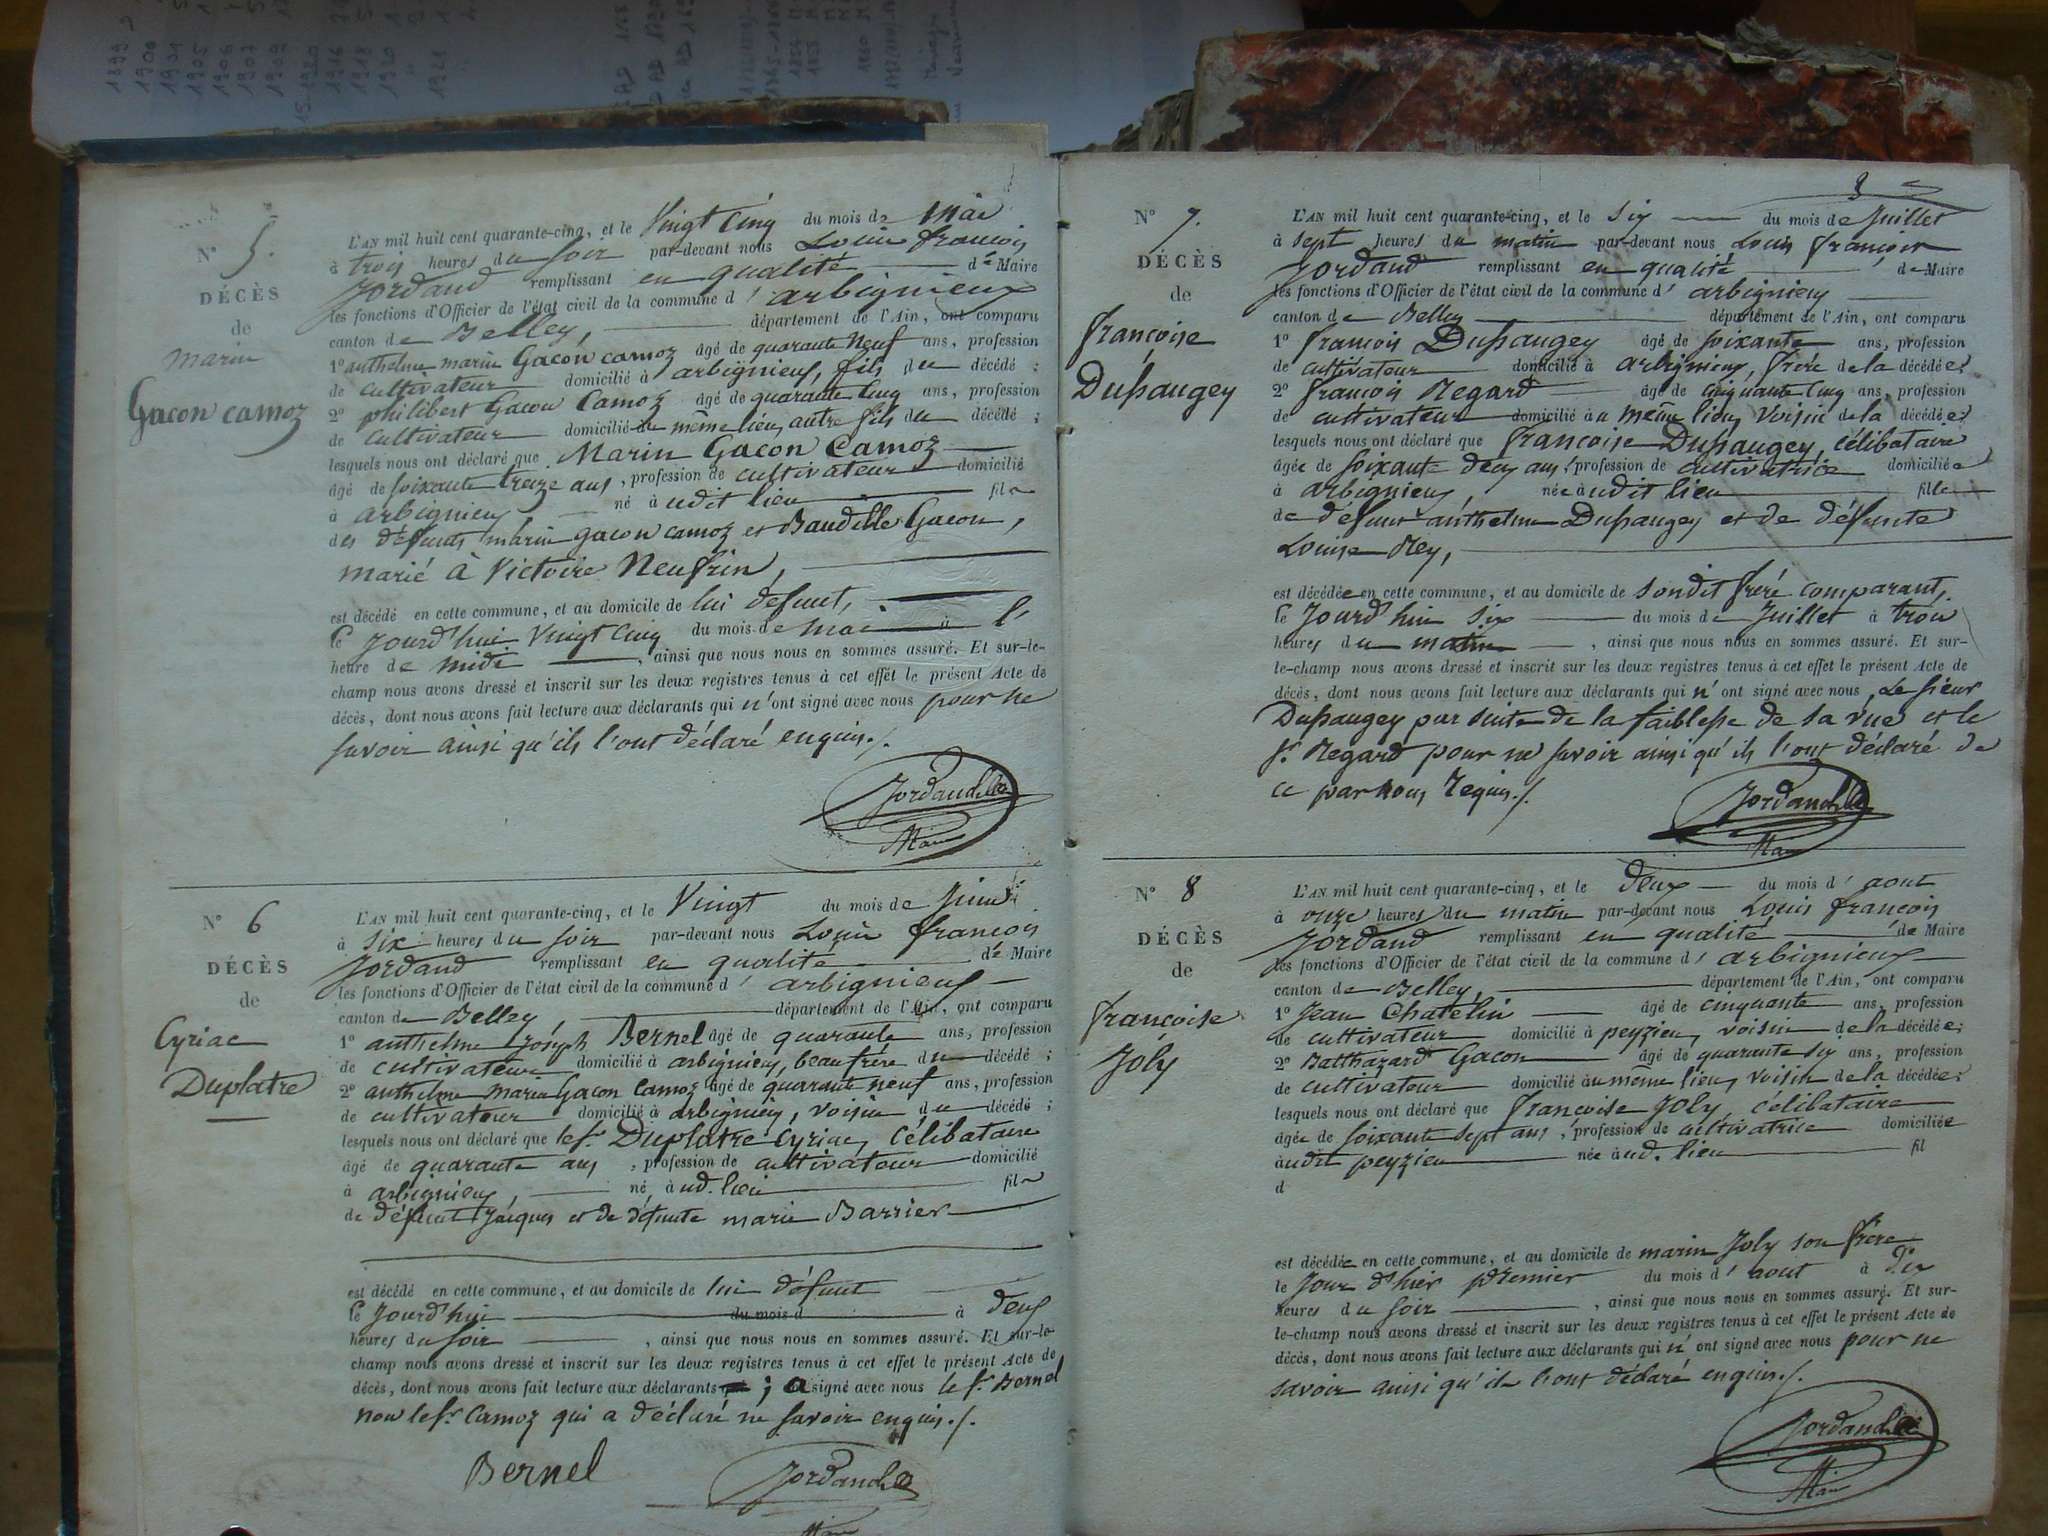 N° 5.
DÉCÈS
de
marin
Gacon camoz
L'AN mil huit cent quarante-cinq, et le Vingt Cinq du mois de Mai
à trois heures du soir par-devant nous Louis françois
Jordand remplissant en qualité de Maire
les fonctions d'Officier de l'état civil de la commune d' arbignieux
canton de Belley, département de l'Ain, ont comparu
1° anthelme marin Gacon camoz âgé de quarante Neuf ans, profession
de cultivateur domicilié à arbignieux, fils du décédé ;
2° philibert Gacon Camoz âgé de quarante Cinq ans, profession
de cultivateur domicilié au même lieu, autre fils du décédé ;
lesquels nous ont déclaré que Marin Gacon Camoz
âgé de soixante treize ans, profession de cultivateur domicilié
à arbignieux né à udit lieu fils
des défunts marin gacon camoz et Baudille Gacon,
marié à Victoire Neufrin,
est décédé en cette commune, et au domicile de lui defunt,
le Jourd'hui vingt cinq du mois de mai à l'
heure de midi, ainsi que nous nous en sommes assuré. Et sur-le-
champ nous avons dressé et inscrit sur les deux registres tenus à cet effet le présent Acte de
décès, dont nous avons fait lecture aux déclarants qui n'ont signé avec nous pour ne
savoir ainsi qu'ils l'ont déclaré enquis./.
Jordand
Maire
N° 6
DÉCÈS
de
Cyriac
Duplatre
L'AN mil huit cent quarante-cinq, et le Vingt du mois de Juin
à six heures du soir par-devant nous Louis françois
Jordand remplissant en qualité de Maire
les fonctions d'Officier de l'état civil de la commune d' arbignieux
canton de Belley, département de l'Ain, ont comparu
1° anthelme Joseph Bernel âgé de quarante ans, profession
de cultivateur domicilié à arbignieux, beau frère du décédé ;
2° anthelme marin Gacon camoz âgé de quarante neuf ans, profession
de cultivateur domicilié à arbignieux, voisin du décédé ;
lesquels nous ont déclaré que le sr. Duplatre Cyriac, célibataire
âgé de quarante ans, profession de cultivateur domicilié
à arbignieux, né à ud. lieu fils
de défunt Jacques et de défunte marie Barrier
est décédé en cette commune, et au domicile de lui défunt
le Jourd'hui du mois d à deux
heures du soir, ainsi que nous nous en sommes assuré. Et sur-le-
champ nous avons dressé et inscrit sur les deux registres tenus à cet effet le présent Acte de
décès, dont nous avons fait lecture aux déclarants ; a signé avec nous le sr. Bernel
non le sr. Camoz qui a déclaré ne savoir enquis./.
Bernel Jordand
Maire
3
N° 7.
DÉCÈS
de
françoise
Dupaugey
L'AN mil huit cent quarante-cinq, et le six du mois de Juillet
à sept heures du matin par-devant nous Louis françois
Jordand remplissant en qualité de Maire
les fonctions d'Officier de l'état civil de la commune d' arbignieux
canton de Belley département de l'Ain, ont comparu
1° françois Dupaugey âgé de soixante ans, profession
de cultivateur domicilié à arbignieux, frère de la décédée ;
2° françois Regard âgé de cinquante Cinq ans, profession
de cultivateur domicilié au même lieu, voisin de la décédée ;
lesquels nous ont déclaré que françoise Dupaugey, célibataire
âgée de soixante deux ans, profession de cultivatrice domiciliée
à arbignieux, née à udit lieu fille
de défunt anthelme Dupaugey et de défunte
Louise Rey,
est décédée en cette commune, et au domicile de sondit frère comparant,
le Jourd'hui six du mois de Juillet à trois
heures du matin, ainsi que nous nous en sommes assuré. Et sur-
le-champ nous avons dressé et inscrit sur les deux registres tenus à cet effet le présent Acte de
décès, dont nous avons fait lecture aux déclarants qui n' ont signé avec nous, Le sieur
Dupaugey par suite de la faiblesse de sa vue et le
sr. Regard pour ne savoir ainsi qu'ils l'ont déclaré de
ce par nous requis./.
Jordand
Maire
N° 8
DÉCÈS
de
françoise
Joly
L'AN mil huit cent quarante-cinq, et le deux du mois d' aout
à onze heures du matin par-devant nous Louis françois
Jordand remplissant en qualité de Maire
les fonctions d'Officier de l'état civil de la commune d' arbignieux
canton de Belley, département de l'Ain, ont comparu
1° Jean Chatelin âgé de cinquante ans, profession
de cultivateur domicilié à peyzieu, voisin de la décédée ;
2° Balthazard Gacon âgé de quarante six ans, profession
de cultivateur domicilié au même lieu, voisin de la décédée ;
lesquels nous ont déclaré que françoise Joly, célibataire
âgée de soixante sept ans, profession de cultivatrice domiciliée
à udit peyzieu née à ud. lieu fil
d
est décédée en cette commune, et au domicile de marin Joly son frère
le Jour d'hier premier du mois d' aout à dix
heures du soir, ainsi que nous nous en sommes assuré. Et sur-
le-champ nous avons dressé et inscrit sur les deux registres tenus à cet effet le présent Acte de
décès, dont nous avons fait lecture aux déclarants qui n' ont signé avec nous pour ne
savoir ainsi qu'ils l'ont déclaré enquis./.
Jordand
Maire